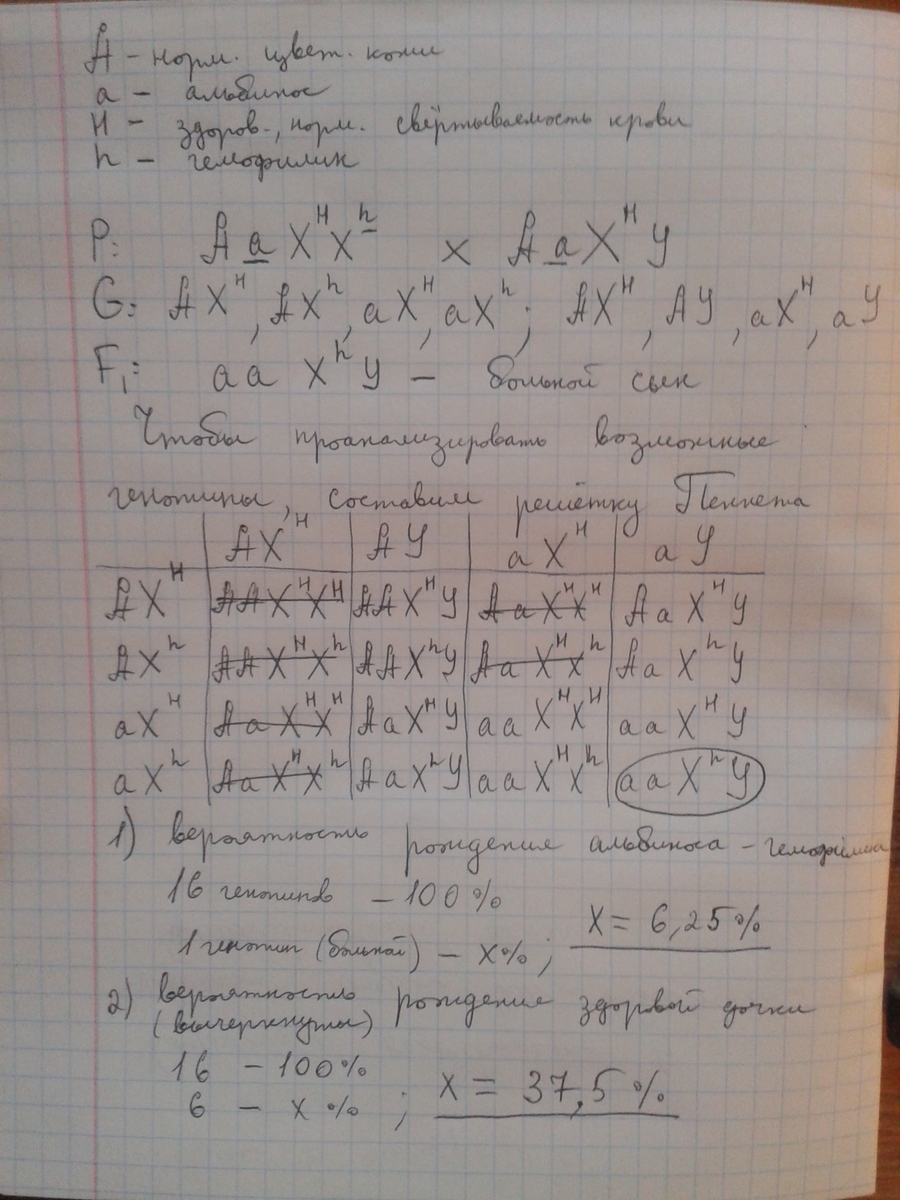 A – норм. цвет. кожи
а – альбинос
H – здоров., норм. свёртываемость крови
h – гемофилик
P: A a X^H X^h × A a X^H У
G: A X^H, A X^h, a X^H, a X^h; A X^H, A У, a X^H, a У
F₁: a a X^h У – больной сын
Чтобы проанализировать возможные
генотипы, составим решётку Пеннета
A X^H A У a X^H a У
A X^H A A X^H X^H A A X^H У A a X^H X^H A a X^H У
A X^h A A X^H X^h A A X^h У A a X^H X^h A a X^h У
a X^H A a X^H X^H A a X^H У a a X^H X^H a a X^H У
a X^h A a X^H X^h A a X^h У a a X^H X^h a a X^h У
1) вероятность рождение альбиноса – гемофилика
16 генотипов – 100 %
1 генотип (больной) – X %; X = 6,25 %
2) вероятность рождение здоровой дочки
(вычеркнуты)
16 – 100 %
6 – X %; X = 37,5 %